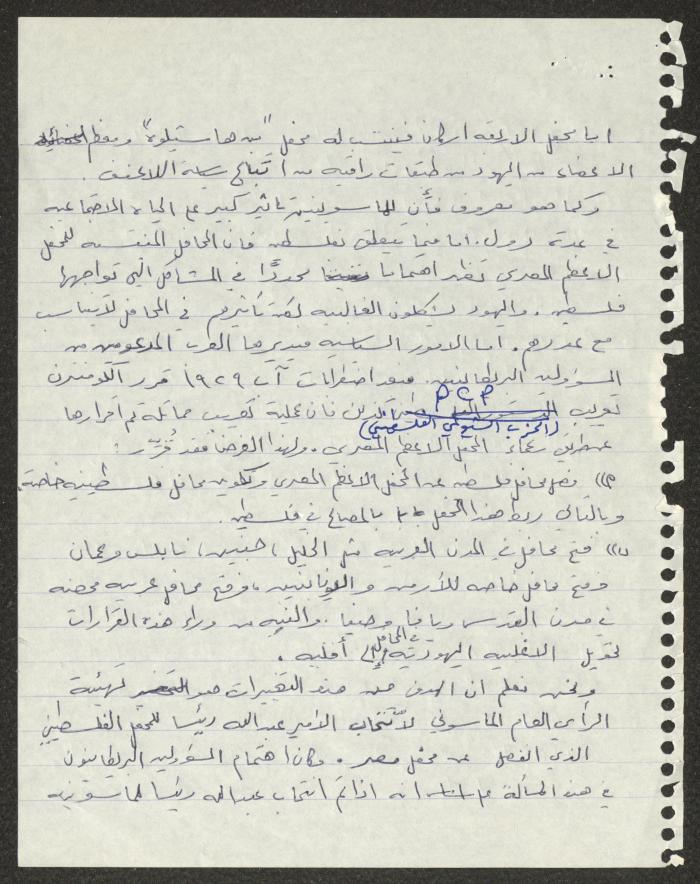 اما محفل الاربعة اركان فينتسب له محفل "بن ها" ومعظم
الاعضاء من اليهود من طبقات راقية من اتباع سياسة اللاعنف .
وكما هو معروف فأن للماسونيين تاثير كبير على الحياة الاجتماعيه
في عدة دول . اما فيما يتعلق بفلسطين فان المحافل المنتسبه للمحفل
الاعظم المصري تظهر اهتماما محددًا في المشاكل التي تواجهها
فلسطين . واليهود يشكلون الغالبيه لكن تأثيرهم في المحافل لا يتناسب
مع عددهم . اما الامور السياسيه فيديرها العرب المدعومين من
المسؤولين البريطانيين . فبعد اضطرابات آب ١٩٢٩ قرر الكومنترن
P C P
تعريب (الحزب الشيوعي الفلسطيني) فان عملية تعريب مماثلة تم اقرارها
عن طريق زعماء المحفل الاعظم المصري . ولهذا الغرض فقد قُرّر :
أ)) فصل محافل فلسطين عن المحفل الاعظم المصري وتكوين محافل فلسطينيه خاصة .
وبالتالي ربط هذا المحفل بالمصالح في فلسطين .
ب)) فتح محافل في المدن العربيه مثل الخليل ، جنين ، نابلس وعمان
وفتح محافل خاصه للأرمن واليونانيين ، وفتح محافل عربيه محضه
في مدن القدس ويافا وحيفا . والنيه من وراء هذه القرارات
تحويل الاغلبيه اليهوديّة في المحافل إلى أقليه .
ونحن نعلم ان الهدف من هذه التغييرات هو تهيئة
الرأي العام الماسوني لأنتخاب الأمير عبدالله رئيسا للمحفل الفلسطيني
الذي انفصل عن محفل مصر . وكان اهتمام المسؤولين البريطانيون
في هذه المسألة انه اذا تم انتخاب عبدالله رئيسا للماسونيه